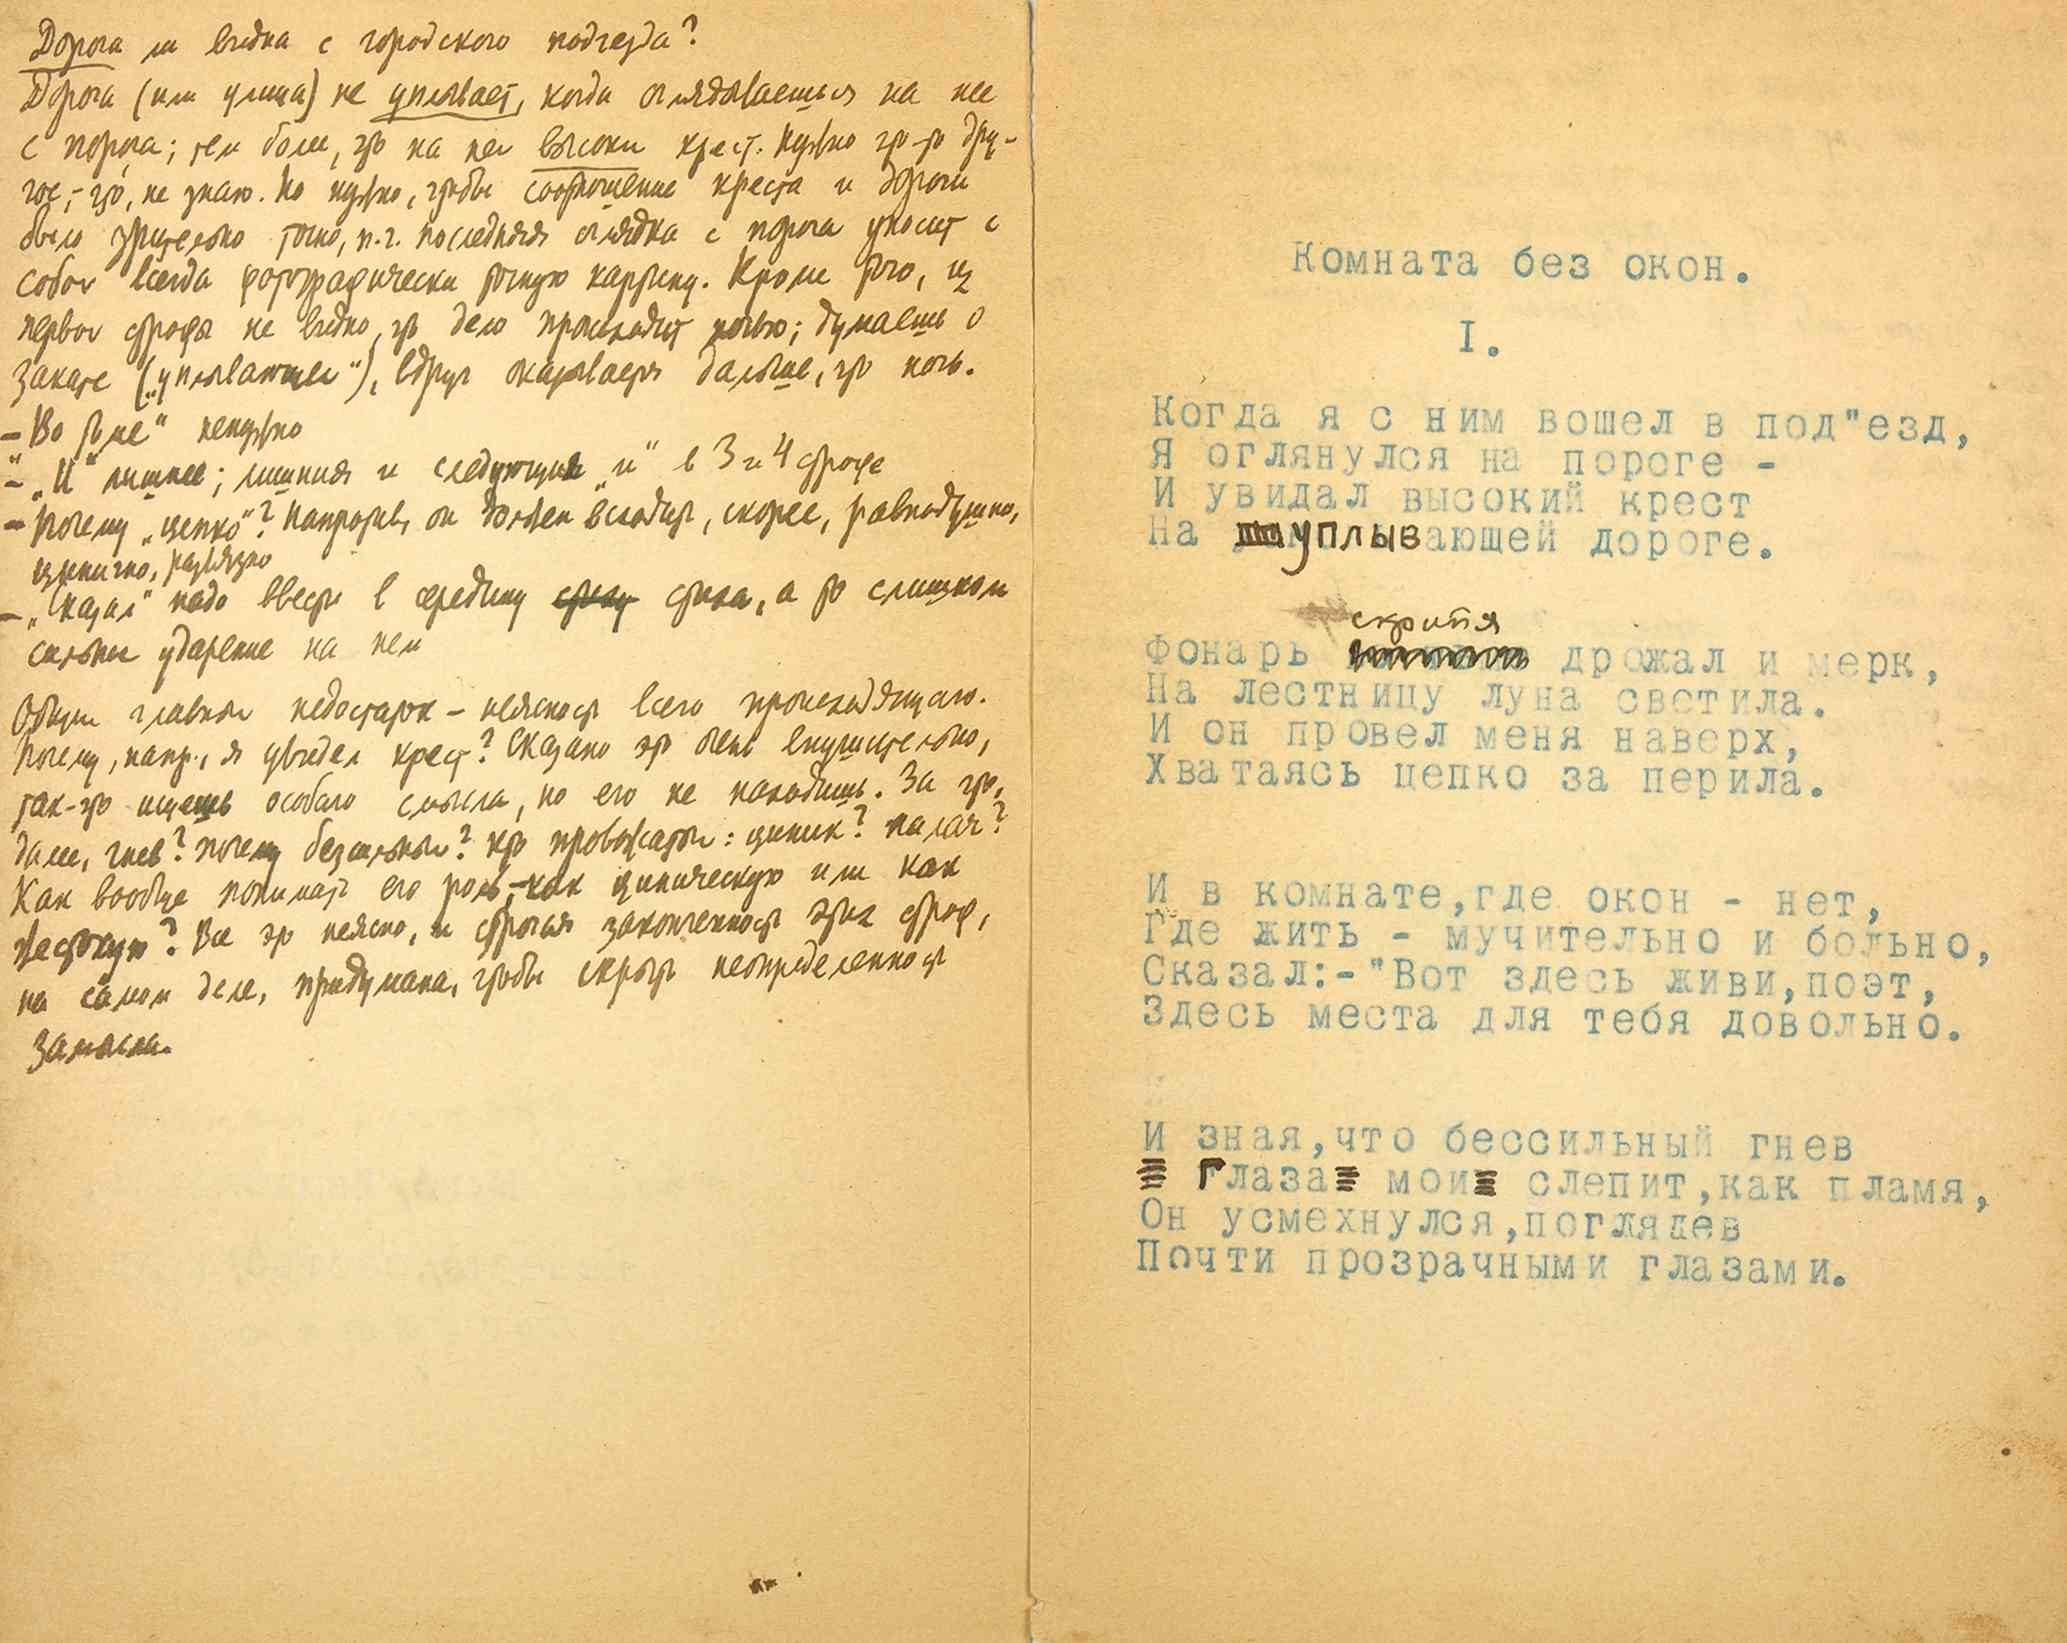 Дорога ли видна с городского подъезда?
Дорога (или улица) не уплывает, когда оглядываешься на нее
с порога; тем более, что на ней высокий крест. Нужно что-то дру-
гое, - что, не знаю. Но нужно, чтобы соотношение креста и дороги
было зрительно точно, п.ч. последняя оглядка с порога уносит с
собой всегда фотографически точную картину. Кроме того, из
первой строфы не видно, что дело происходит ночью; думаешь о
закате („уплывающей"), вдруг оказывается дальше, что ночь.
- „Во тьме" ненужно
- „И" лишнее; лишния и следующия „и" в 3 и 4 строфе
- Почему „цепко"? Напротив, он должен всходить, скорее, равнодушно,
цинично, развязно
- „Сказал" надо ввести в середину строку стиха, а то слишком
сильное ударение на нем
Общий главный недостаток - неясность всего происходящаго.
Почему, напр., я увидел крест? Сказано это очень внушительно,
так-что ищешь особаго смысла, но его не находишь. За что,
далее, гнев? почему безсильный? кто провожатый: циник? палач?
Как вообще понимать его роль, - как циническую или как
жестокую? Все это неясно, и строгая законченность этих строф,
на самом деле, придумана, чтобы скрыть неопределенность
замысла.
Комната без окон.
I.
Когда я с ним вошел в под"езд,
Я оглянулся на пороге -
И увидал высокий крест
На уплывающей дороге.
скрипя
Фонарь дрожал и мерк,
На лестницу луна светила.
И он провел меня наверх,
Хватаясь цепко за перила.
И в комнате, где окон - нет,
Где жить - мучительно и больно,
Сказал:-"Вот здесь живи,поэт,
Здесь места для тебя довольно.
И зная,что бессильный гнев
Глаза мои слепит,как пламя,
Он усмехнулся,поглядев
Почти прозрачными глазами.